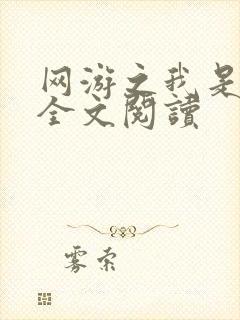 网游之我是
全文閱讀
雾索